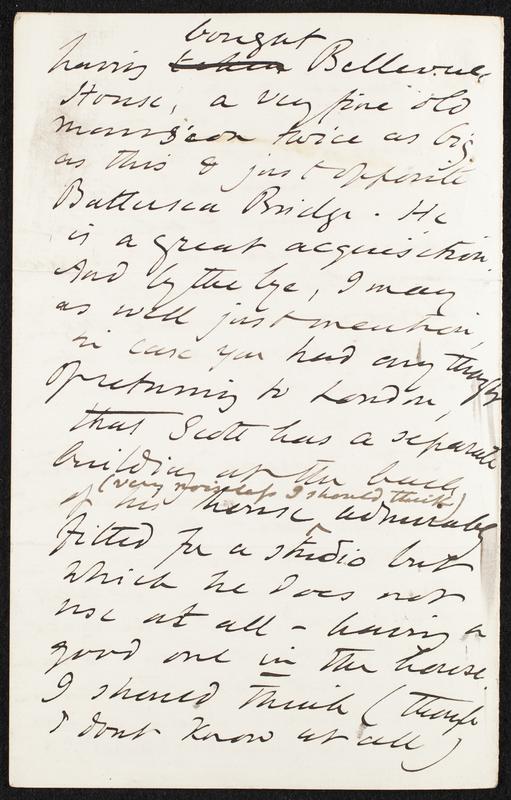 bought
having taken Bellevue
House, a very fine old
mansion twice as big
as this & just opposite
Battersea Bridge. He
is a great acquisition.
And by the bye, I may
as well just mention,
in case you had any thought
of returning to London,
that Scott has a separate
building at the back
(very noiseless I should think)
of his house admirably
fitted for a studio but
which he does not
use at all – having a
good one in the house.
I should think (though
I dont know at all)